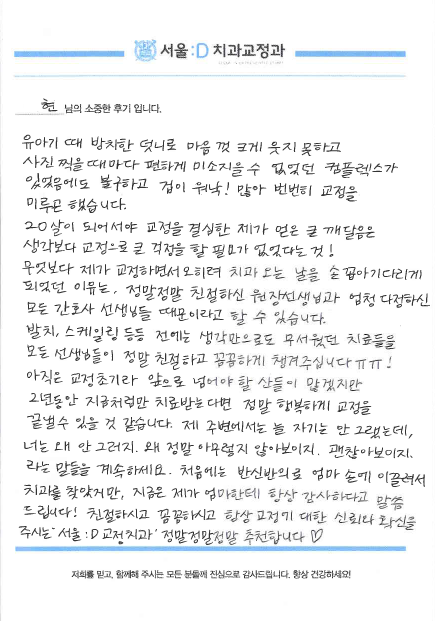 서울:D 치과교정과
현 님의 소중한 후기 입니다.
유아기 때 방치한 덧니로 마음 껏 크게 웃지 못하고
사진 찍을 때마다 편하게 미소지을 수 없었던 컴플렉스가
있었음에도 불구하고 겁이 워낙! 많아 번번히 교정을
미루곤 했습니다.
20살이 되어서야 교정을 결심한 제가 얻은 큰 깨달음은
생각보다 교정으로 큰 걱정을 할 필요가 없었다는 것!
무엇보다 제가 교정하면서 오히려 치과 오는 날을 손꼽아기다리게
되었던 이유는, 정말정말 친절하신 원장선생님과 엄청 다정하신
모든 간호사 선생님들 때문이라고 할 수 있습니다.
발치, 스케일링 등등 전에는 생각만으로도 무서웠던 치료들을
모든 선생님들이 정말 친절하고 꼼꼼하게 챙겨주십니다ㅠㅠ!
아직은 교정초기라 앞으로 넘어야 할 산들이 많겠지만
2년동안 지금처럼만 치료받는다면 정말 행복하게 교정을
끝낼 수 있을 것 같습니다. 제 주변에서는 늘 자기는 안 그랬는데,
너는 왜 안 그러지. 왜 정말 아무렇지 않아보이지. 괜찮아보이지.
라는 말들을 계속하세요. 처음에는 반신반의로 엄마 손에 이끌려서
치과를 찾았지만, 지금은 제가 엄마한테 항상 감사하다고 말씀
드립니다! 친절하시고 꼼꼼하시고 항상 교정기 대한 신뢰와 확신을
주시는 '서울:D교정치과' 정말정말정말 추천합니다♡
저희를 믿고, 함께해 주시는 모든 분들께 진심으로 감사드립니다. 항상 건강하세요!